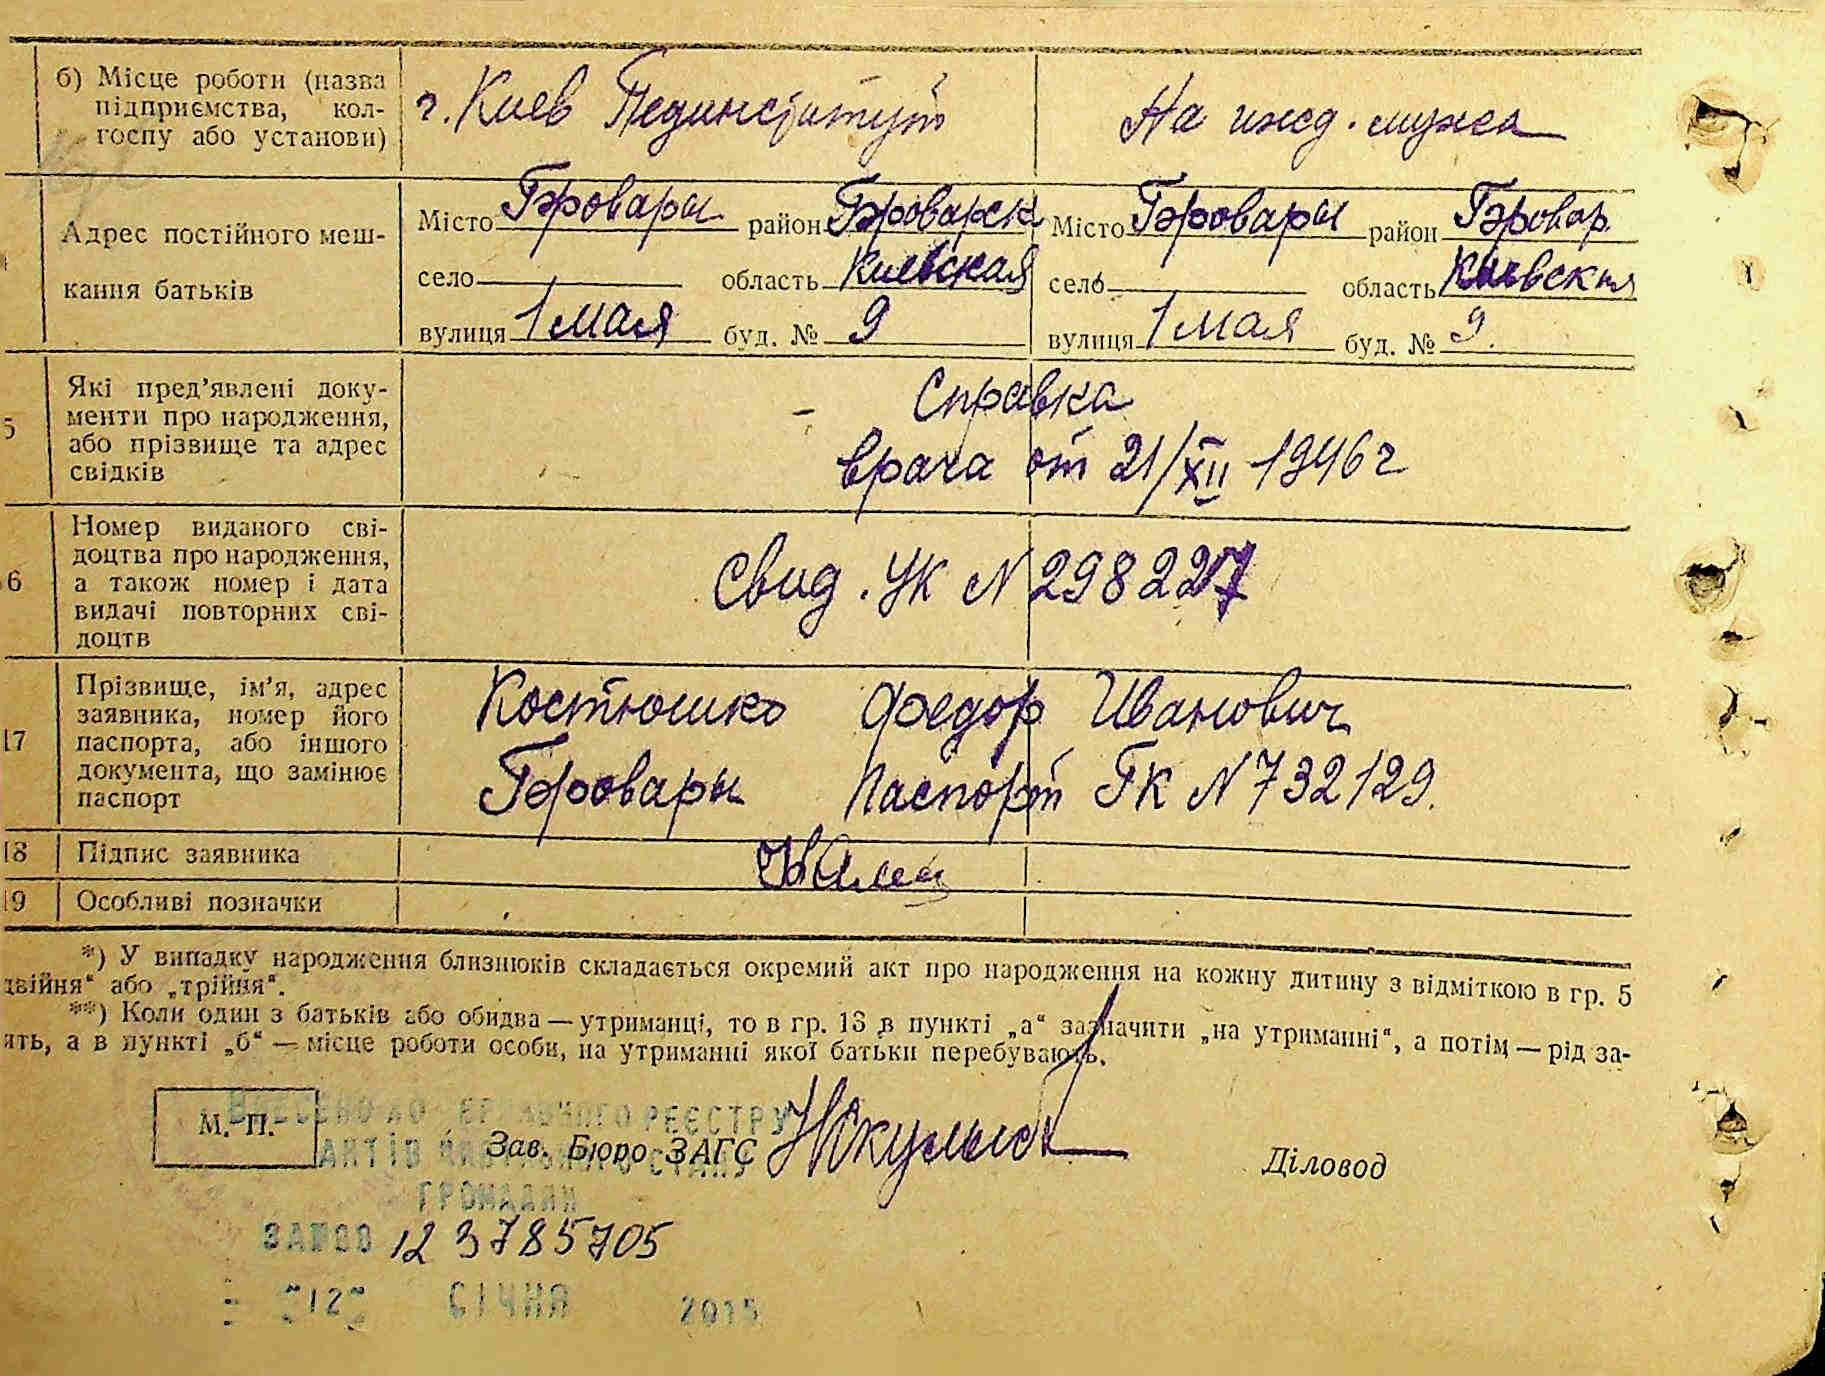 б) Місце роботи (назва
підприємства, кол-
госпу або установи)
г. Киев Пединститут
На ижд. мужа
Адрес постійного меш-
кання батьків
Місто Бровары район Броварск
село область Киевская
вулиця 1 мая буд. № 9
Місто Бровары район Бровар.
село область Киевская
вулиця 1 мая буд. № 9.
5
Які пред'явлені доку-
менти про народження,
або прізвище та адрес
свідків
Справка
врача от 21/XII 1946 г
6
Номер виданого сві-
доцтва про народження,
а також номер і дата
видачі повторних сві-
доцтв
Свид. УК N 298227
17
Прізвище, ім'я, адрес
заявника, номер його
паспорта, або іншого
документа, що замінює
паспорт
Костюшко Федор Иванович
Бровары Паспорт ГК N 732129.
18 Підпис заявника
19 Особливі позначки
*) У випадку народження близнюків складається окремий акт про народження на кожну дитину з відміткою в гр. 5
двійня“ або „трійня“.
**) Коли один з батьків або обидва — утриманці, то в гр. 13 в пункті „а“ зазначити „на утриманні“, а потім — рід за-
ять, а в пункті „б“ — місце роботи особи, на утриманні якої батьки перебувають.
М. П.
ВНЕСЕНО ДО ДЕРЖАВНОГО РЕЄСТРУ
АКТІВ ЦИВІЛЬНОГО СТАНУ
ГРОМАДЯН
Зав. Бюро ЗАГС
Діловод
ЗА №00 123785705
"12" СІЧНЯ 2015